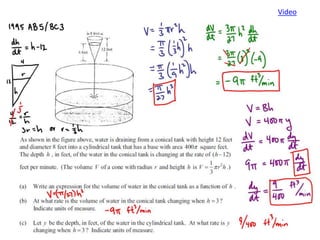 Video
1995 AB5/BC3
dh/dt = h-12
h-12
8 feet
12 feet
4
r
12
h
r/h = 4/12
r/h = 1/3
3r = h or r = 1/3 h
V = 1/3 πr²h
= 1/3 π(1/3 h)²h
= 1/3 π(1/9 h²)h
= π/27 h³
dV/dt = 3π/27 h² dh/dt
= 3π/27 (3)²(-9)
= -9π ft³/min
V = Bh
V = 400π y
dV/dt = 400π dy/dt
9π = 400π dy/dt
dy/dt = 9/400 ft/min
As shown in the figure above, water is draining from a conical tank with height 12 feet
and diameter 8 feet into a cylindrical tank that has a base with area 400π square feet.
The depth h, in feet, of the water in the conical tank is changing at the rate of (h-12)
feet per minute. (The volume V of a cone with radius r and height h is V = 1/3 πr²h.)
(a) Write an expression for the volume of water in the conical tank as a function of h.
V = (π/27)h³
(b) At what rate is the volume of water in the conical tank changing when h = 3?
Indicate units of measure. -9π ft³/min
(c) Let y be the depth, in feet, of the water in the cylindrical tank. At what rate is y
changing when h = 3? Indicate units of measure. 9/400 ft/min